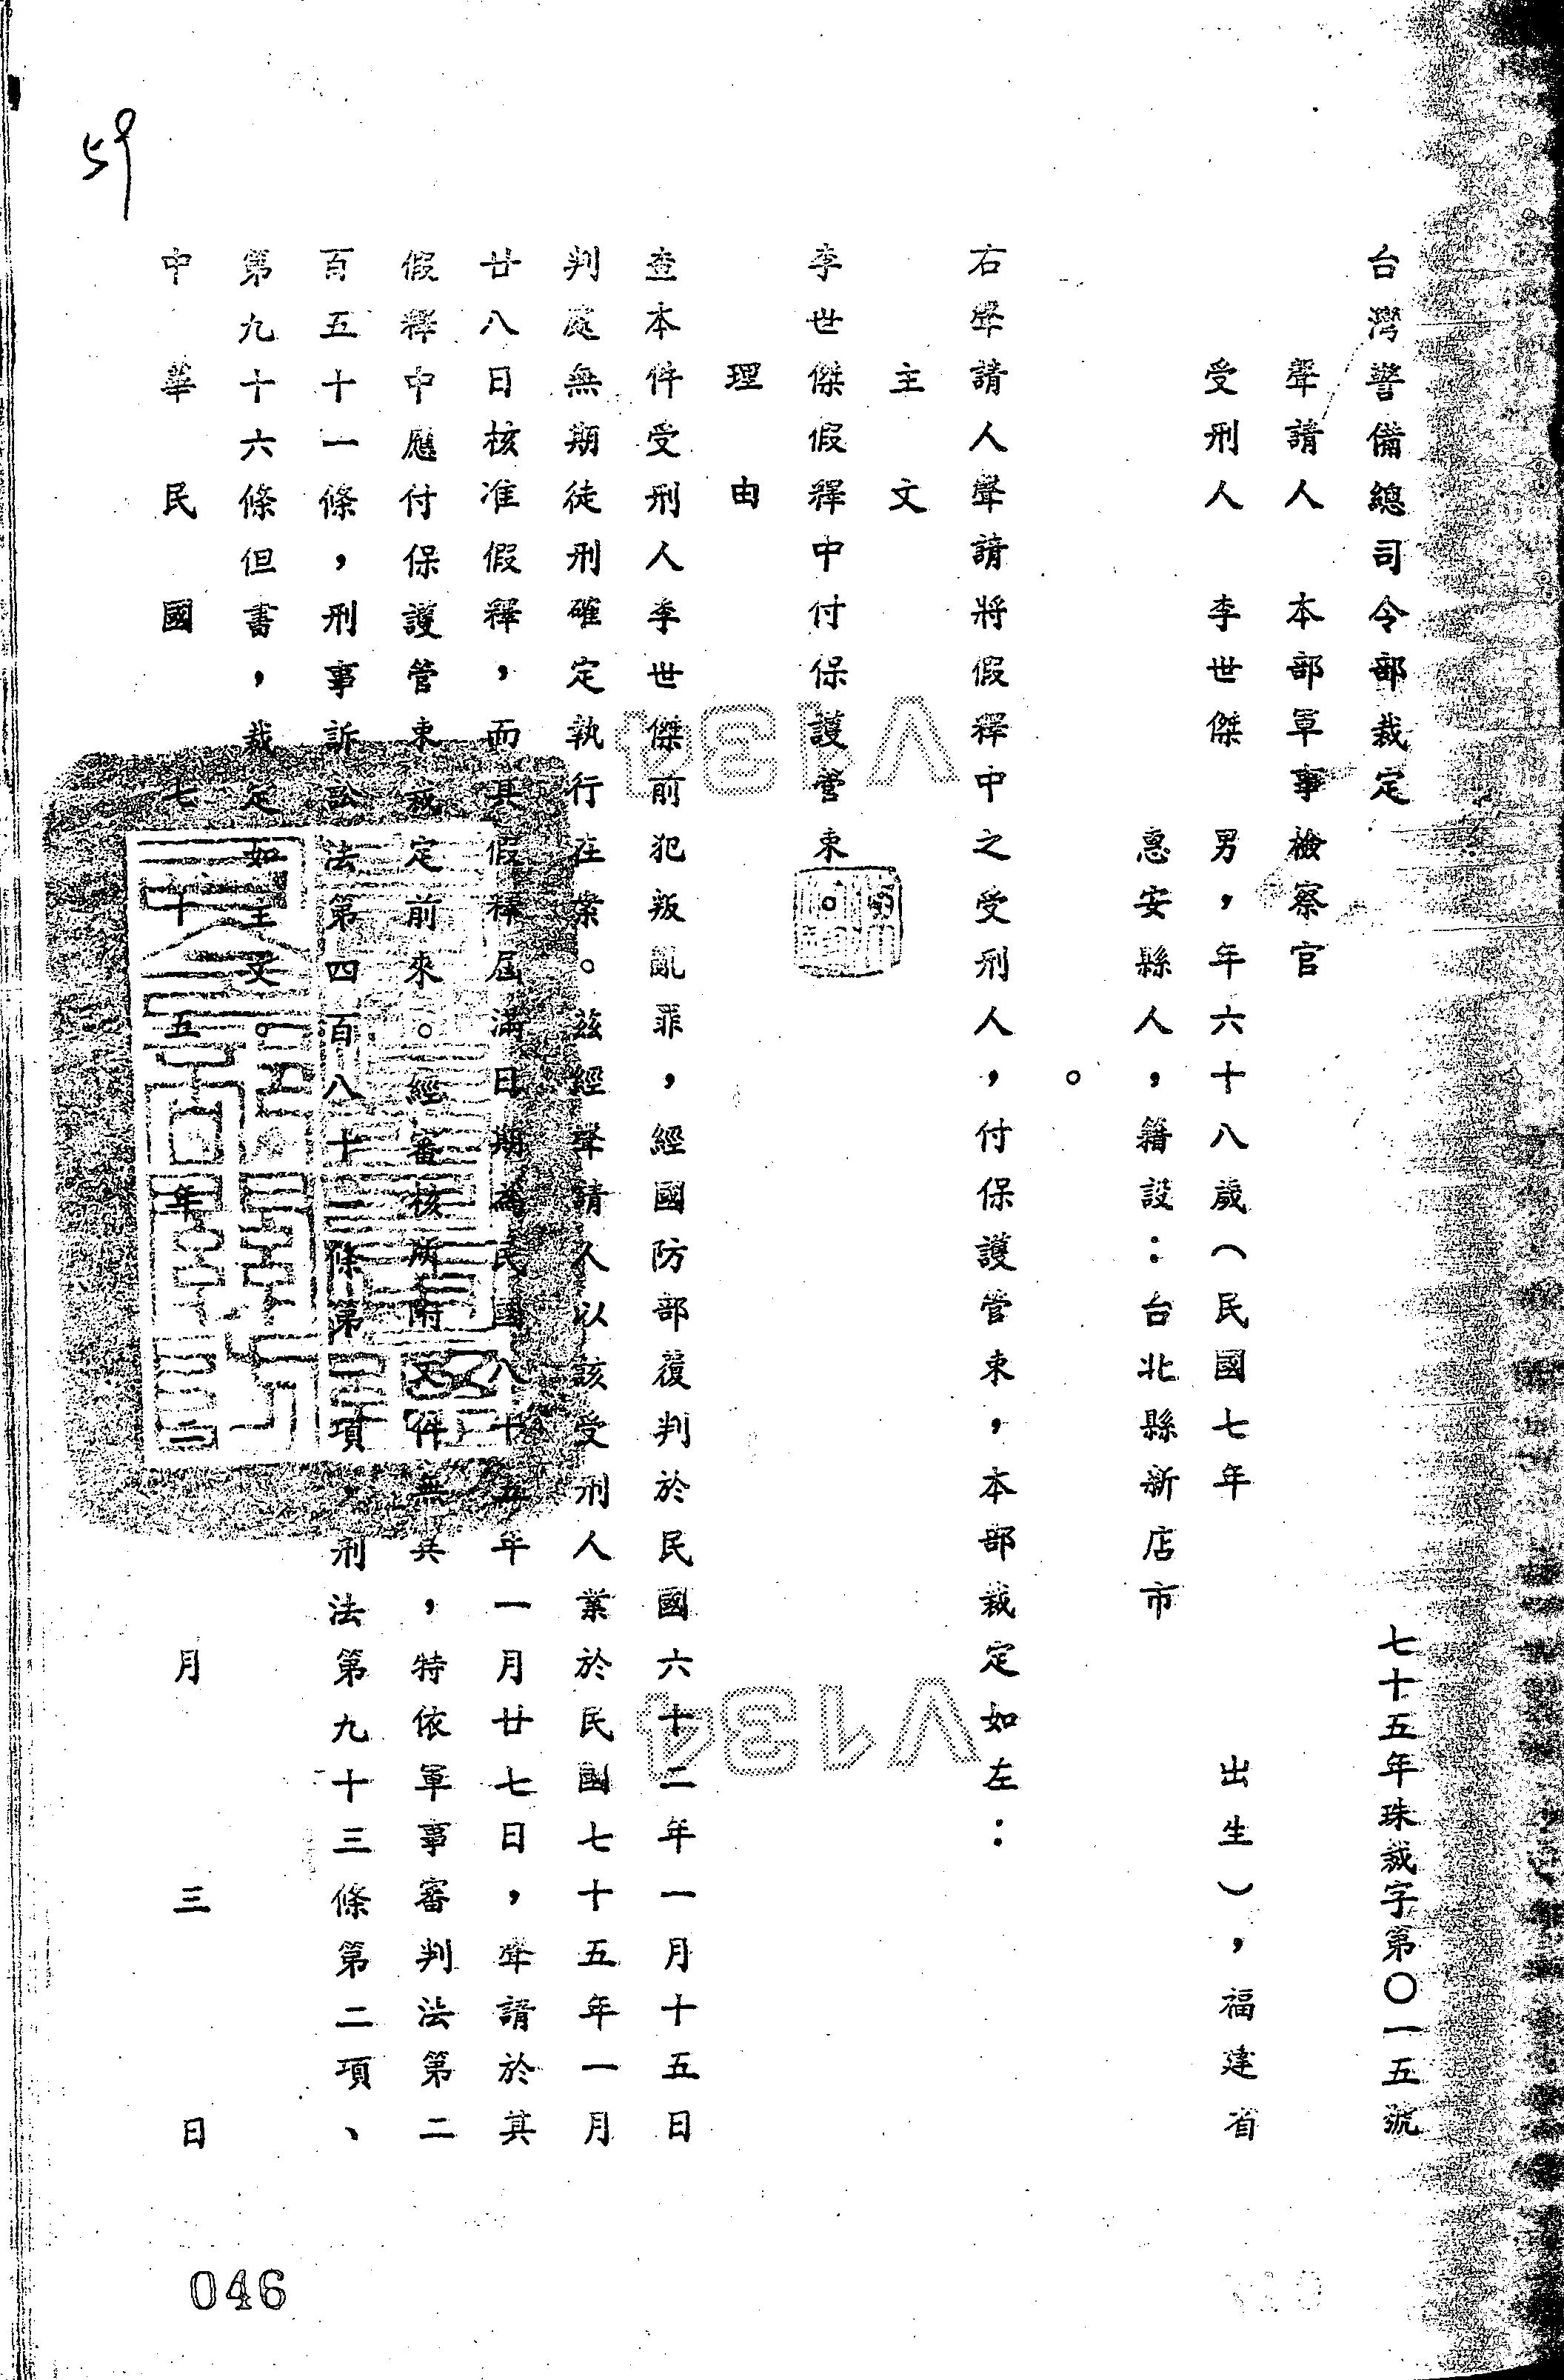 台灣警備總司令部裁定 七十五年珠裁字第〇一五號
聲請人 本部軍事檢察官
受刑人 李世傑 男，年六十八歲（民國七年 出生），福建省
惠安縣人，籍設：台北縣新店市
。
右聲請人聲請將假釋中之受刑人，付保護管束，本部裁定如左：
主文
李世傑假釋中付保護管束。
理由
查本件受刑人李世傑前犯叛亂罪，經國防部覆判於民國六十二年一月十五日
判處無期徒刑確定執行在案。茲經聲請人以該受刑人業於民國七十五年一月
廿八日核准假釋，而其假釋屆滿日期為民國八十五年一月廿七日，聲請於其
假釋中應付保護管束裁定前來。經審核所附文件無異，特依軍事審判法第二
百五十一條，刑事訴訟法第四百八十一條第一項，刑法第九十三條第二項、
第九十六條但書，裁定如主文。
中華民國七十五年二月三日
59
046
V134
V134